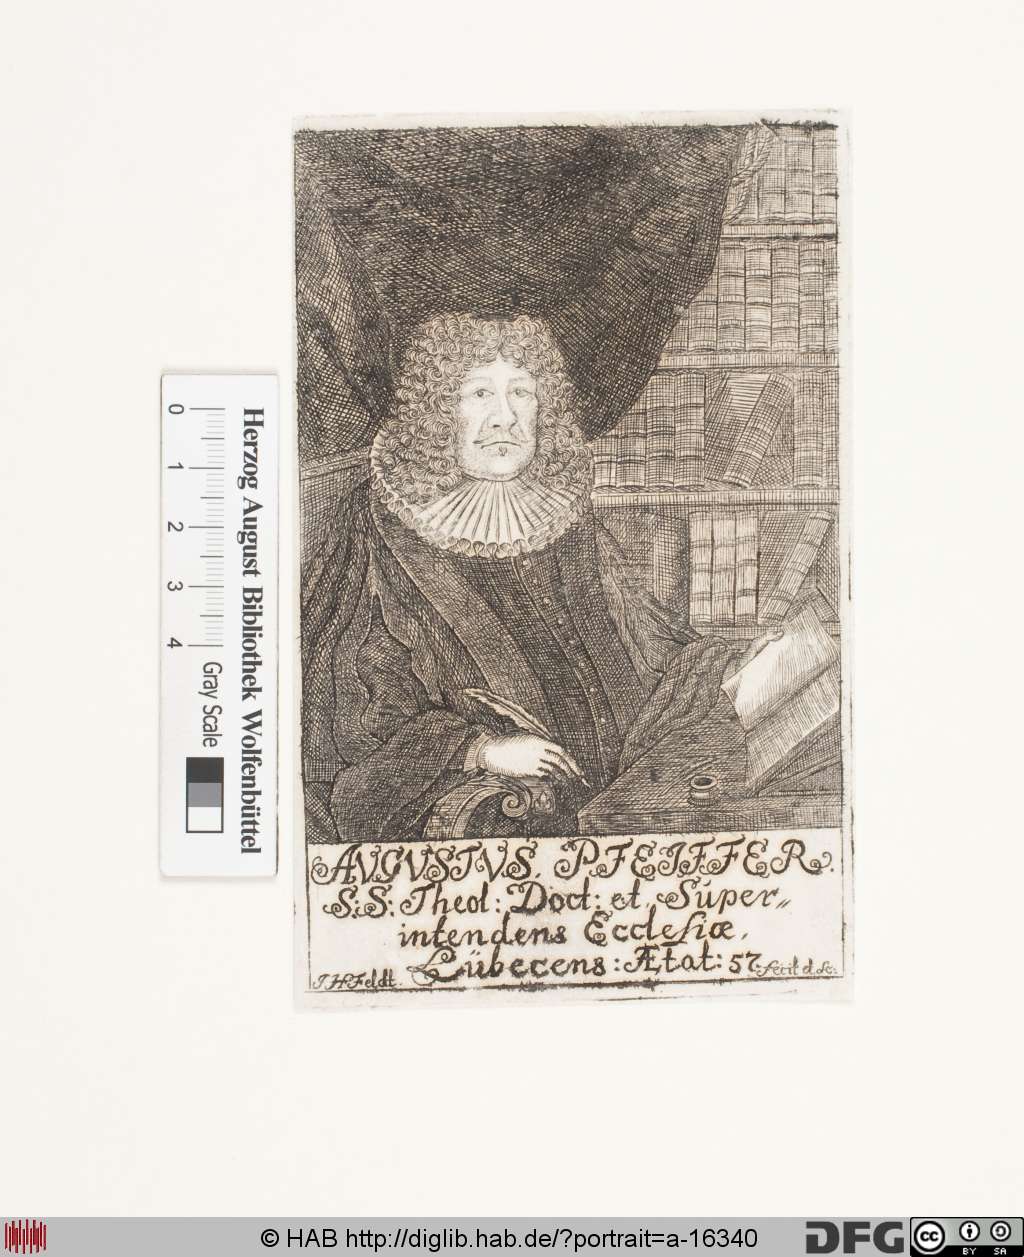 AVGVSTVS. PFEIFFER.
S: S: Theol: Doct: et. Super„
intendens Ecclesiæ.
Lübecens: Ætat: 57.
J. H. Feldt. fecit d. Sc:
Herzog August Bibliothek Wolfenbüttel
0 1 2 3 4
Gray Scale
© HAB http://diglib.hab.de/?portrait=a-16340
DFG
cc
BY SA